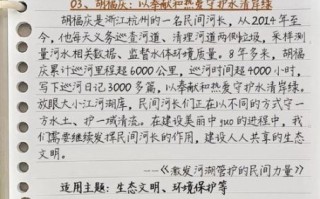 03、胡福庆:以奉献和热爱守护水清岸绿
胡福庆是浙江杭州的一名民间河长,从2014年至
今,他每天义务巡查河道、清理河道两侧垃圾,采样测
量河水相关数据、监督水体环境质量。8年多来,胡福
庆累计巡河里程超6000公里,巡河时间超4000小时,
写下巡河日记3000多篇,以奉献和热爱守护水清岸绿。
放眼大小江河湖库,民间河长们正在以不同的方式守一
方水土、护一域清流。在建设美丽中guo的进程中,我
们需要继续发挥民间河长的作用,建设人人共享的生态
文明。
——《激发河湖管护的民间力量》
适用主题:生态文明、环境保护等